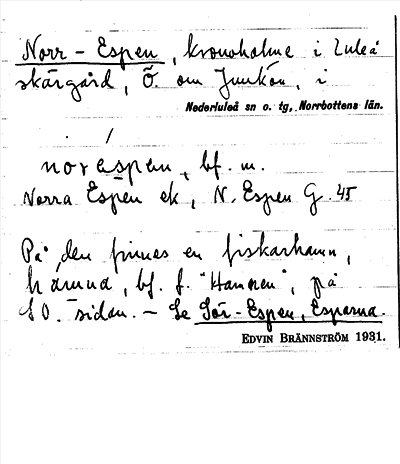 Norr-Espen, kronoholme i Luleå
skärgård, Ö. om Junkön, i
Nederluleå sn o. tg, Norrbottens län.
norespen, bf. m.
Norra Espen ek, N. Espen G. 45
På den finnes en fiskarhamn,
hámna, bf. f. "Hamnen", på
SO. sidan. - Se Sör-Espen, Esparna.
EDVIN BRÄNNSTRÖM 1931.